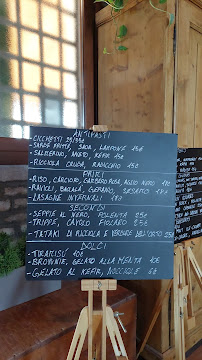 ANTIPASTI
- CICCHETTI
- SARDE FRITTE, SAOR, LAMPONE 15€
- SALMERINO, AGLIO, KEFIR 15€
- RICCIOLA CRUDA, RADICCHIO 18€
PRIMI
- RISO, CARCIOFO, GAMBERO ROSA, AGLIO NERO 18€
- RAVIOLI, BACCALÀ, SESAMO 18€
- LASAGNE INFERNALI 17€
SECONDI
- SEPPIE AL NERO, POLENTA 25€
- TRIPPE, CAVOLO FIOLARO 25€
- TATAKI DI RICCIOLA E VERDURE DELL'ORTO 25€
DOLCI
- TIRAMISÙ 10€
- BROWNIE, GELATO ALLA MENTA 10€
- GELATO AL KEFIR, NOCCIOLE 8€